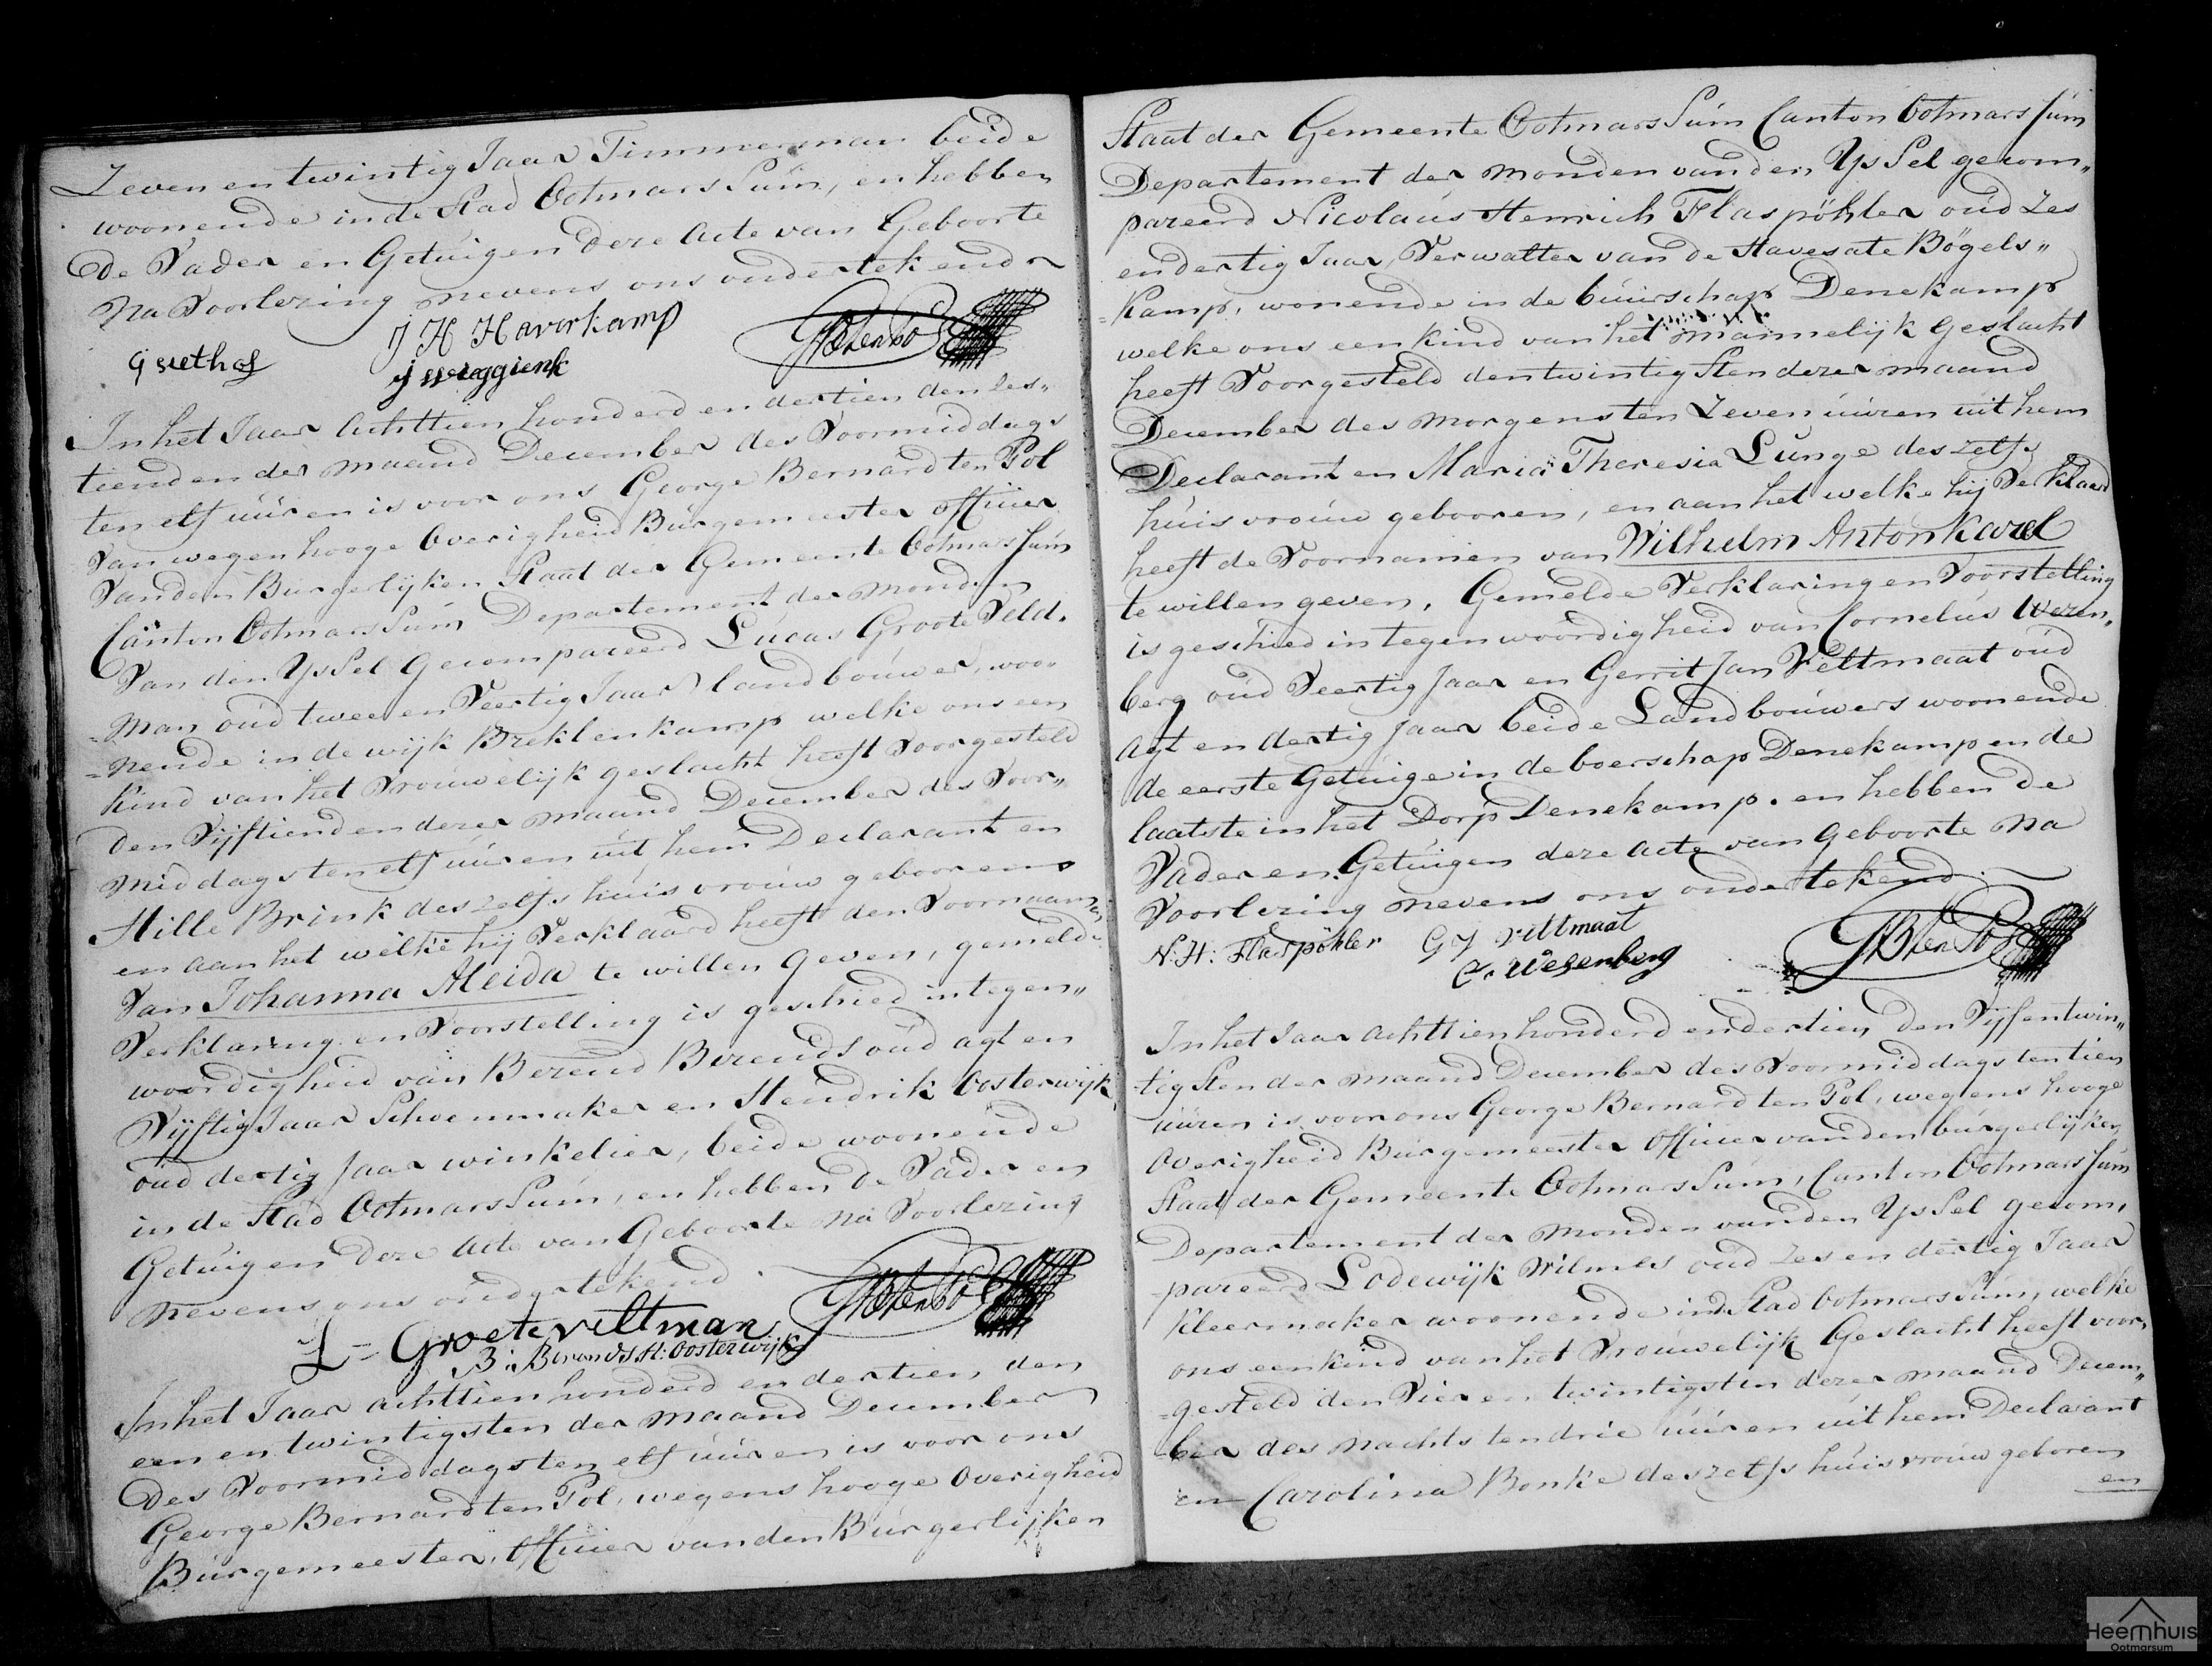 Zeven en twintig Jaar Timmerman beide
woonende in de Stad OotmarsSum, en hebben
de Vader en Getuigen deze Acte van Geboorte
Na Voorlezing nevens ons ondertekend
J H Haverkamp
In het Jaar Achttien honderd en dertien den zes„
tienden der maand December des Voormiddags
ten elf uúren is voor ons George Bernard ten Pol
Van wegen hooge Overigheid Burgemeester officier
Van den Burgerlijken Staat der Gemeente OotmarsSum
Canton OotmarsSum Departement der Monden
Van den YsSel Gecompareerd Lucas Groote Veld„
=man oud twee en Veertig Jaar landbouwer, woo„
=nende in de wijk Breklenkamp welke ons een
kind van het Vrouwelijk geslacht heeft Voorgesteld
den Vijftienden dezer maand December des Voor„
middags ten elf uuren uit hem Declarant en
Hille Brink deszelfs huisvrouw gebooren
en aan het welke hij Verklaard heeft den Voornaam
Van Johanna Aleida te willen Geven, gemelde
Verklaring en Voorstelling is geschied in tegen„
woordigheid van Berend Berends oud agt en
Vijftig Jaar Schoenmaker en Hendrik Oosterwijk
oud dertig Jaar winkelier, beide woonende
in de Stad OotmarsSum, en hebben de Vader en
Getuigen deze Acte van Geboorte Na Voorlezing
nevens ons ondertekend.
GBtenPol
L= Groeteveltman
B: Berends H: Oosterwijk
In het Jaar achttien honderd en dertien den
een en twintigsten der maand December
des Voormiddags ten elf uuren is voor ons
George Bernard ten Pol, wegens hooge Overigheid
Burgemeester, Officier van den Burgerlijken
Staat der Gemeente OotmarsSum Canton OotmarsSum
Departement der monden van den YsSel gecom„
pareerd Nicolaus Henrich Flaspöhler oud Zes
en dertig Jaar, Verwalter van de Havesate Bögels„
=kamp, wonende in de buurschap Denekamp
welke ons een kind van het mannelijk Geslacht
heeft Voorgesteld den twintigsten dezer maand
December des morgens ten Zeven uuren uit hem
Declarant en Maria Theresia Lunge deszelfs
huisvrouw gebooren, en aan het welke hij Verklaard
heeft de Voornamen van Wilhelm Anton Karel
te willen geven, Gemelde Verklaring en Voorstelling
is geschied in tegenwoordigheid van Cornelus Wezen„
berg oud Veertig Jaar en Gerrit Jan Veltmaat oud
agt en dertig Jaar beide Landbouwers woonende
de eerste Getuige in de boerschap Denekamp en de
laatste in het Dorp Denekamp. en hebben de
Vader en Getuigen deze Acte van Geboorte Na
Voorlezing nevens ons ondertekend.
N: H: Flaspöhler G J Veltmaat
C. Wesenberg
GBtenPol
In het Jaar achttienhonderd en dertien den Vijfentwin„
tigsten der maand December des Voormiddags ten tien
uuren is voor ons George Bernard ten Pol, wegens hooge
Overigheid Burgemeester Officier van den burgerlijken
Staat der Gemeente OotmarsSum, Canton OotmarsSum
Departement der monden van den YsSel gecom„
=pareerd Lodewijk Wilmes oud Zes en dertig Jaar
Kleermaker woonende in de Stad OotmarsSum, welke
ons een kind van het Vrouwelijk Geslacht heeft voor„
=gesteld den Vier en twintigsten dezer maand Decem„
=ber des Nachts ten drie uuren uit hem Declarant
en Carolina Bonke deszelfs huisvrouw geboren
en
Heemhuis
Ootmarsum